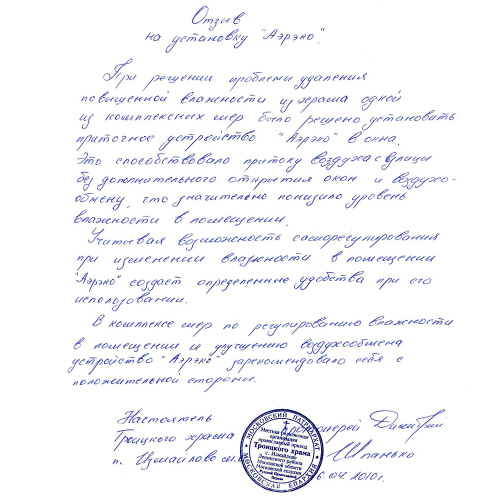 Отзыв
на установку "Аэрэко".
При решении проблемы удаления
повышенной влажности из храма одной
из комплексных мер было решено установать
приточное устройство "Аэрэко" в окна.
Это способствовало притоку воздуха с улици
без дополнительного открытия окон и воздухо-
обмену, что значительно понизило уровень
влажности в помещении.
Учитывая возможность саморегулирования
при изменении влажности в помещении
"Аэрэко" создаёт определенные удобства при его
использовании.
В комплексе мер по регулированию влажности
в помещении и улучшению воздухообмена
устройство "Аэрэко" зарекомендовало себя с
положительной стороны.
Настоятель протоиерей Димитрий
Троицкого храма Шпанько
п. Измайлово
6.04.2010г.
МОСКОВСКИЙ ПАТРИАРХАТ
МОСКОВСКАЯ ЕПАРХИЯ
Местная религиозная
организация
православный приход
Троицкого храма
с. Измайлово
Ленинского района
Московской области
Московской епархии
Русской Православной
Церкви